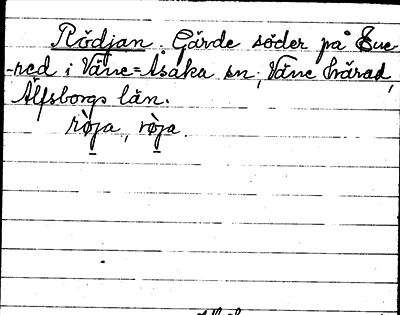 Rödjan. Gärde söder på Eue-
-red i Väne-Åsaka sn, Väne härad,
Älfsborgs län.
rö̀ja, rö̀ja.